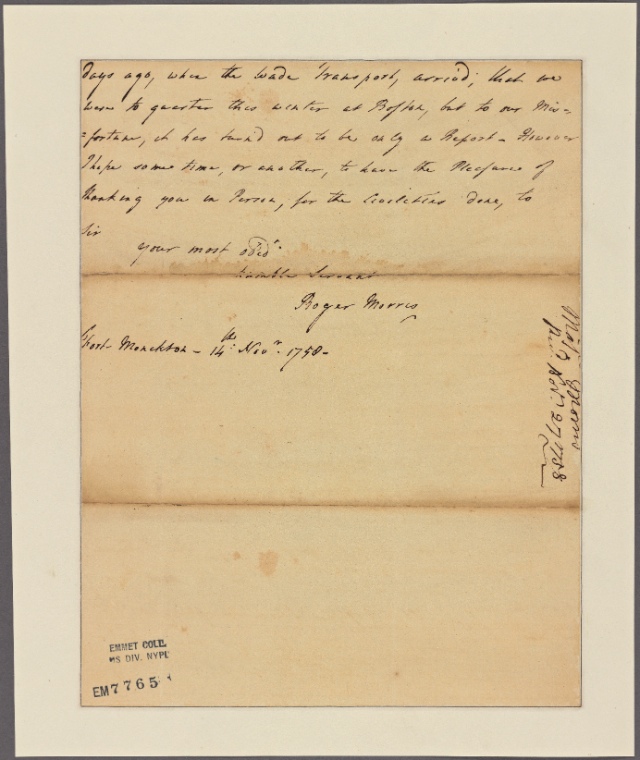 days ago, when the Wade Transport, arriv'd; that we
were to quarter this winter at Boston, but to our Mis=
=fortune, it has turn'd out to be only a Report - However
I hope some time, or another, to have the Pleasure of
thanking you in Person, for the Civilities done, to
Sir
your most obed.t
humble Servant
Roger Morris
Fort Monckton - 14.th Nov.r 1758 -
Morris
Nov.r 27 1758
EMMET COLL.
MS DIV. NYPL
EM 7765